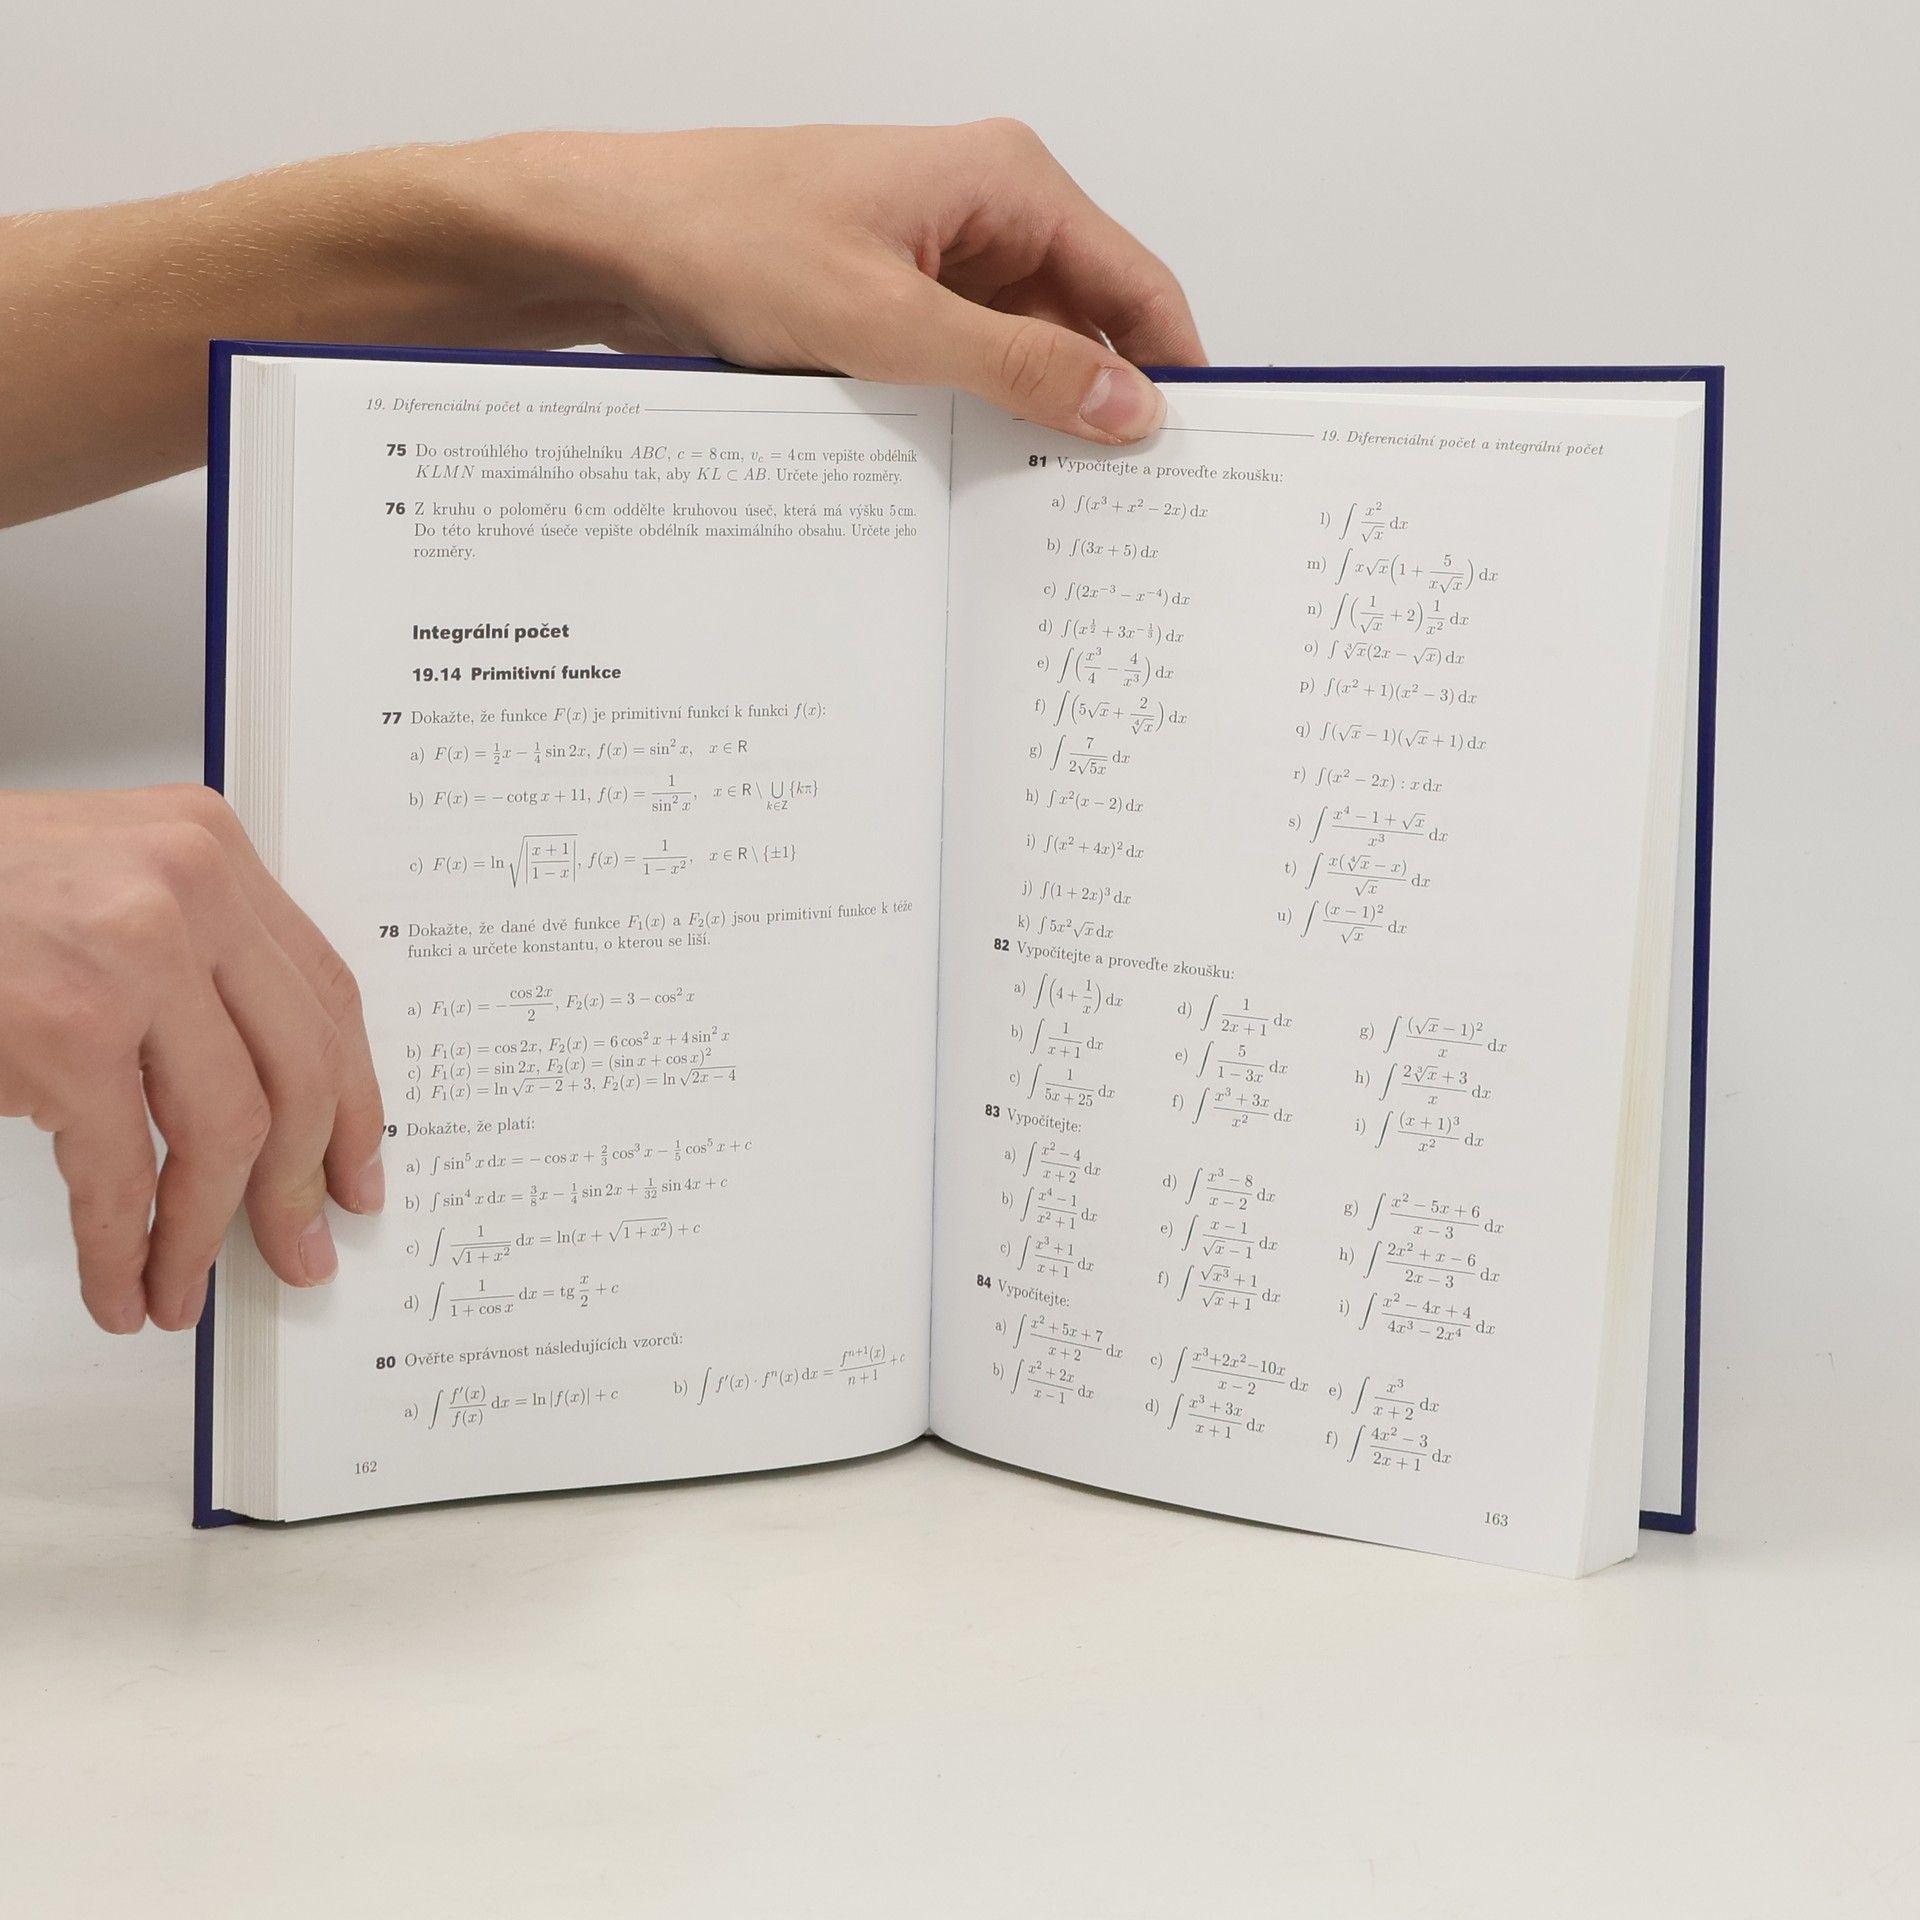 19. Diferenciální počet a integrální počet
75 Do ostroúhlého trojúhelníku ABC, c = 8 cm, v_c = 4 cm vepište obdélník
KLMN maximálního obsahu tak, aby KL ⊂ AB. Určete jeho rozměry.
76 Z kruhu o poloměru 6 cm oddělte kruhovou úseč, která má výšku 5 cm.
Do této kruhové úseče vepište obdélník maximálního obsahu. Určete jeho
rozměry.
Integrální počet
19.14 Primitivní funkce
77 Dokažte, že funkce F(x) je primitivní funkcí k funkci f(x):
a) F(x) = 1/2 x − 1/4 sin 2x, f(x) = sin² x, x ∈ R
b) F(x) = − cotg x + 11, f(x) = 1/(sin² x), x ∈ R \ ⋃_{k∈Z} {kπ}
c) F(x) = ln √|(x + 1)/(1 − x)|, f(x) = 1/(1 − x²), x ∈ R \ {±1}
78 Dokažte, že dané dvě funkce F₁(x) a F₂(x) jsou primitivní funkce k téže
funkci a určete konstantu, o kterou se liší.
a) F₁(x) = −(cos 2x)/2, F₂(x) = 3 − cos² x
b) F₁(x) = cos 2x, F₂(x) = 6 cos² x + 4 sin² x
c) F₁(x) = sin 2x, F₂(x) = (sin x + cos x)²
d) F₁(x) = ln √(x − 2) + 3, F₂(x) = ln √(2x − 4)
79 Dokažte, že platí:
a) ∫ sin⁵ x dx = − cos x + 2/3 cos³ x − 1/5 cos⁵ x + c
b) ∫ sin⁴ x dx = 3/8 x − 1/4 sin 2x + 1/32 sin 4x + c
c) ∫ 1/√(1 + x²) dx = ln(x + √(1 + x²)) + c
d) ∫ 1/(1 + cos x) dx = tg x/2 + c
80 Ověřte správnost následujících vzorců:
a) ∫ f′(x)/f(x) dx = ln |f(x)| + c b) ∫ f′(x) · fⁿ(x) dx = fⁿ⁺¹(x)/(n + 1) + c
162
19. Diferenciální počet a integrální počet
81 Vypočítejte a proveďte zkoušku:
a) ∫(x³ + x² − 2x) dx
b) ∫(3x + 5) dx
c) ∫(2x⁻³ − x⁻⁴) dx
d) ∫(x^(1/2) + 3x^(−1/3)) dx
e) ∫(x³/4 − 4/x³) dx
f) ∫(5√x + 2/∜x) dx
g) ∫ 7/(2√(5x)) dx
h) ∫ x²(x − 2) dx
i) ∫(x² + 4x)² dx
j) ∫(1 + 2x)³ dx
k) ∫ 5x²√x dx
l) ∫ x²/√x dx
m) ∫ x√x(1 + 5/(x√x)) dx
n) ∫(1/√x + 2) 1/x² dx
o) ∫ ∛x(2x − √x) dx
p) ∫(x² + 1)(x² − 3) dx
q) ∫(√x − 1)(√x + 1) dx
r) ∫(x² − 2x) : x dx
s) ∫ (x⁴ − 1 + √x)/x³ dx
t) ∫ x(∜x − x)/√x dx
u) ∫ (x − 1)²/√x dx
82 Vypočítejte a proveďte zkoušku:
a) ∫(4 + 1/x) dx
b) ∫ 1/(x + 1) dx
c) ∫ 1/(5x + 25) dx
d) ∫ 1/(2x + 1) dx
e) ∫ 5/(1 − 3x) dx
f) ∫ (x³ + 3x)/x² dx
g) ∫ (√x − 1)²/x dx
h) ∫ (2∛x + 3)/x dx
i) ∫ (x + 1)³/x² dx
83 Vypočítejte:
a) ∫ (x² − 4)/(x + 2) dx
b) ∫ (x⁴ − 1)/(x² + 1) dx
c) ∫ (x³ + 1)/(x + 1) dx
d) ∫ (x³ − 8)/(x − 2) dx
e) ∫ (x − 1)/(√x − 1) dx
f) ∫ (√x³ + 1)/(√x + 1) dx
g) ∫ (x² − 5x + 6)/(x − 3) dx
h) ∫ (2x² + x − 6)/(2x − 3) dx
i) ∫ (x² − 4x + 4)/(4x³ − 2x⁴) dx
84 Vypočítejte:
a) ∫ (x² + 5x + 7)/(x + 2) dx
b) ∫ (x² + 2x)/(x − 1) dx
c) ∫ (x³+2x²−10x)/(x − 2) dx
d) ∫ (x³ + 3x)/(x + 1) dx
e) ∫ x³/(x + 2) dx
f) ∫ (4x² − 3)/(2x + 1) dx
163